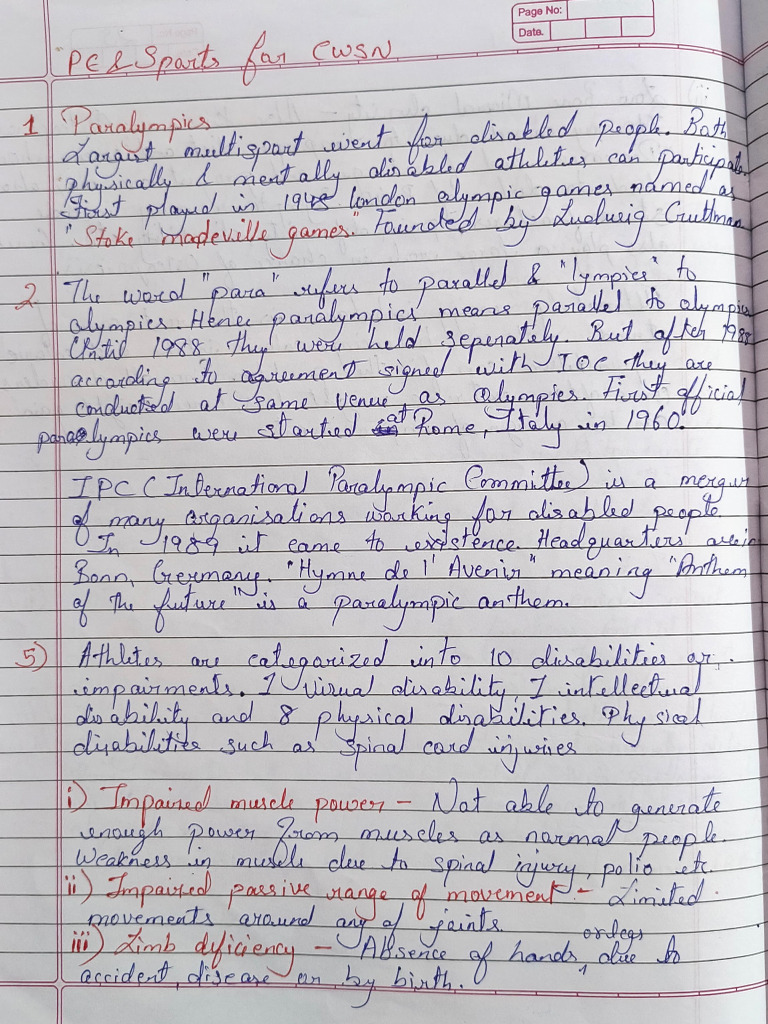 Page No:
Date.
"PE & Sports for CWSN
1 Paralympics
Largest multisport event for disabled people. Both
physically & mentally disabled athletics can participate.
First played in 1948 london olympic games named as
"Stoke madeville games." Founded by Ludwig Guttman
2 The word "para" refers to parallel & "lympics" to
olympics. Hence paralympics means parallel to olympics
Until 1988 they were held seperately. But after 1988
according to agreement signed with IOC they are
conducted at same venue as Olympics. First official
paralympics were started at Rome, Italy in 1960.
IPC (International Paralympic Committee) is a merger
of many organisations working for disabled people.
In 1989 it came to existence. Headquarters are in
Bonn, Germany. "Hymne de l'Avenir" meaning "Anthem
of the future" is a paralympic anthem.
5) Athletes are categorized into 10 disabilities or
impairments. 1 Visual disability, 1 intellectual
disability and 8 physical disabilities. Physical
disabilities such as spinal cord injuries
i) Impaired muscle power - Not able to generate
enough power from muscles as normal people.
Weakness in muscle due to spinal injury, polio etc.
ii) Impaired passive range of movement - Limited
movements around any of joints.
iii) Limb deficiency - Absence of hands or legs due to
accident, disease or by birth.